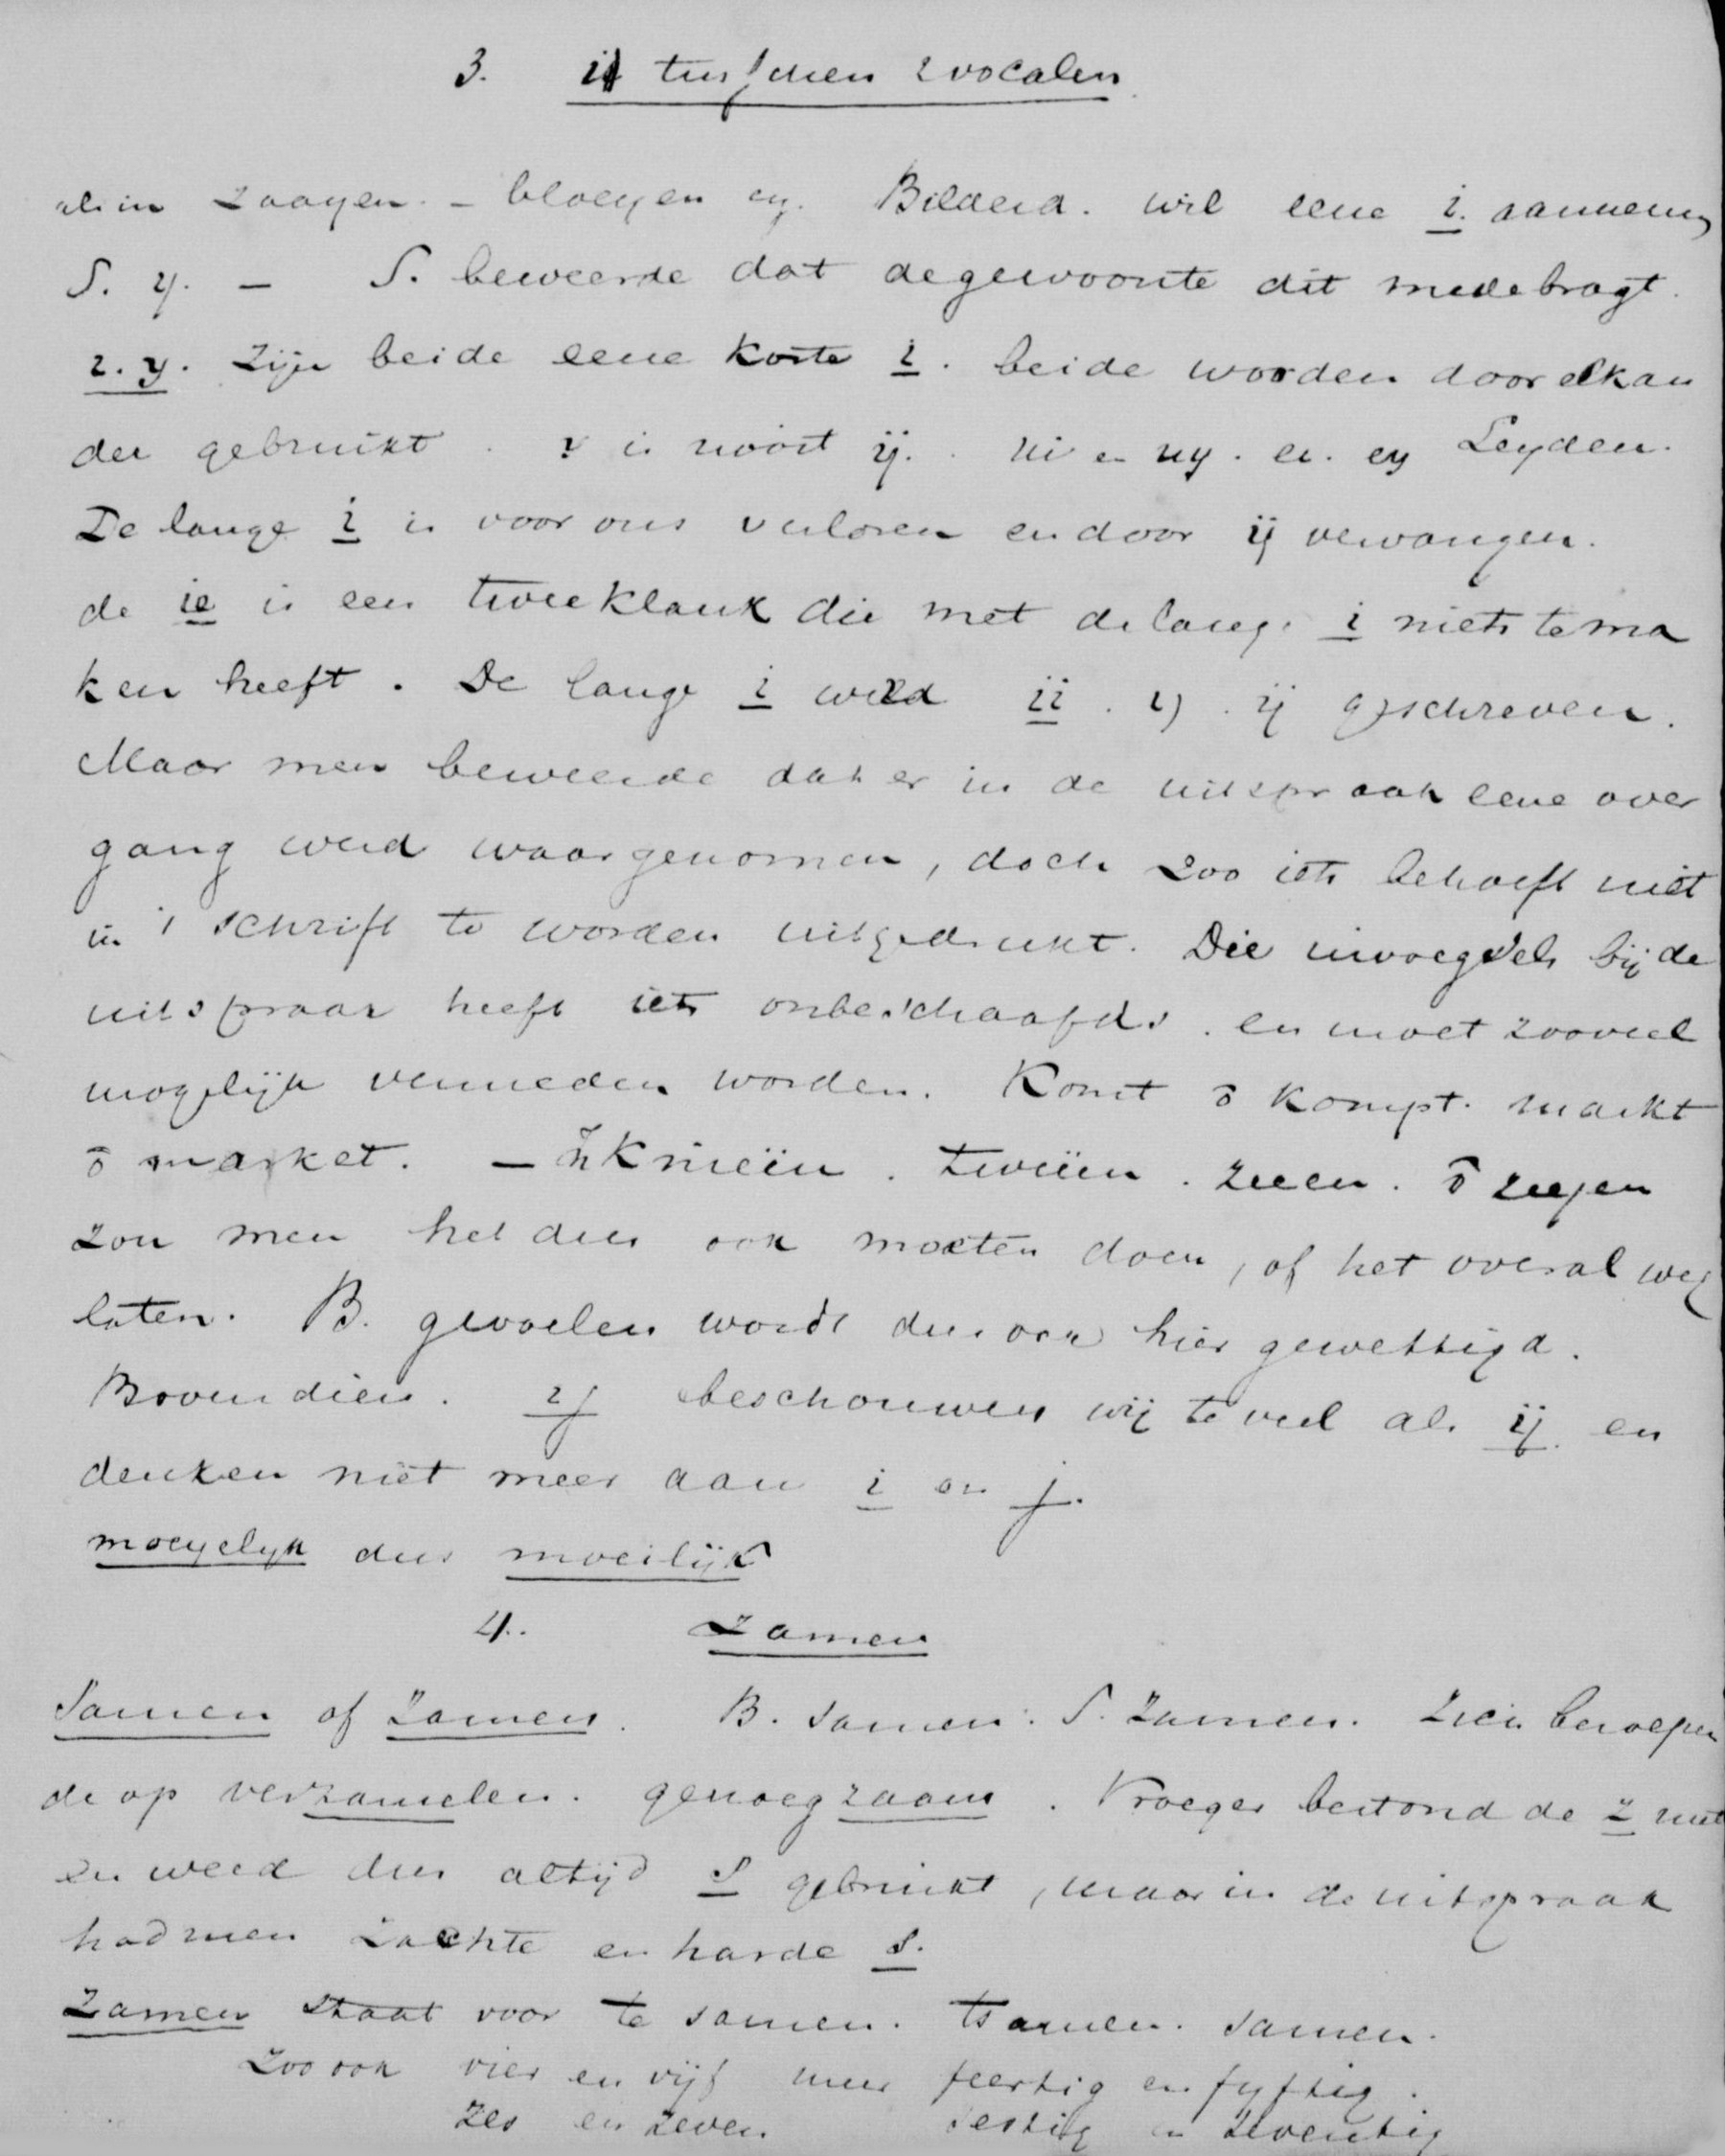 3. ij tusschen 2 vocalen
als in zaayen. – bloeyen ey. Bilderd. wil eene i. aannemen,
S. y. – S. beweerde dat de gewoonte dit medebragt.
i. y. Zijn beide eene korte i. beide worden door elkan
der gebruikt. y is nooit ij. ui en uy. ei. ey Leyden.
De lange i is voor ons verloren en door ij vervangen.
de ie is een tweeklank die met de lange i niets te ma
ken heeft. De lange i werd ii. ij. ij geschreven.
Maar men beweerde dat er in de uitspraak eene over
gang werd waargenomen, doch zoo iets behoeft niet
in 't schrift te worden uitgedrukt. Die invoegsels bij de
uitspraak heeft iets onbeschaafds. en moet zooveel
mogelijk vermeden worden. Komt ō kompt. markt
ō market. – Knieën. tweeën. zeeen. ō zeejen
zou men het dus ook moeten doen, of het overal weg
laten. B. gevoelen wordt dus ook hier gewettigd.
Bovendien. ij beschouwen wij te veel als ij en
denken niet meer aan i en j.
moeyelyk dus moeilijk
4. Zamen
Samen of Zamen. B. samen. S. Zamen. Zich beroepen
de op verzamelen. genoegzaam. Vroeger bestond de z niet
en werd dus altijd s gebruikt, maar in de uitspraak
had men zachte en harde s.
Zamen staat voor te samen. tsamen. samen.
Zoo ook vier en vijf maar feertig en fyftig.
zes en zeven sestig en zeventig